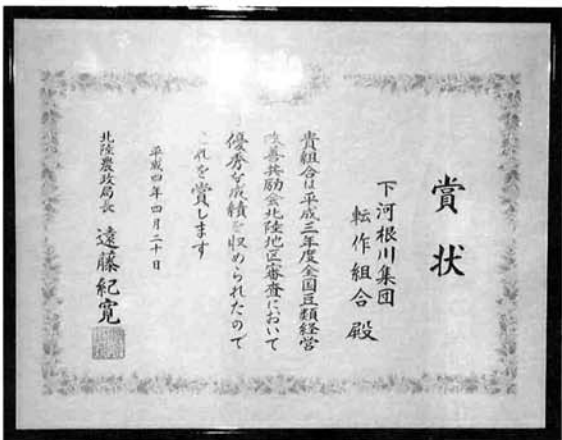 賞状
下河根川集団
転作組合 殿
貴組合は平成三年度全国豆類経営
改善共励会北陸地区審査において
優秀な成績を収められたので
これを賞します
平成四年四月二十日
北陸農政局長 遠藤紀寛